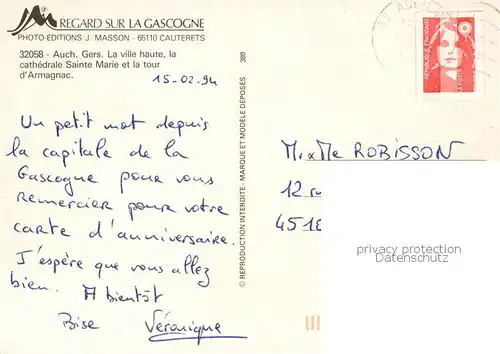 REGARD SUR LA GASCOGNE
PHOTO-EDITIONS J. MASSON - 65110 CAUTERETS
32058 - Auch. Gers. La ville haute, la
cathédrale Sainte Marie et la tour
d'Armagnac.
15-02-94
Un petit mot depuis
la capitale de la
Gascogne pour vous
remercier pour votre
carte d'anniversaire.
J'espère que vous allez
bien. A bientôt
Bise Véronique
389
© REPRODUCTION INTERDITE - MARQUE ET MODELE DEPOSES
RÉPUBLIQUE FRANÇAISE
M. & Me ROBISSON
12
4518
privacy protection
Datenschutz